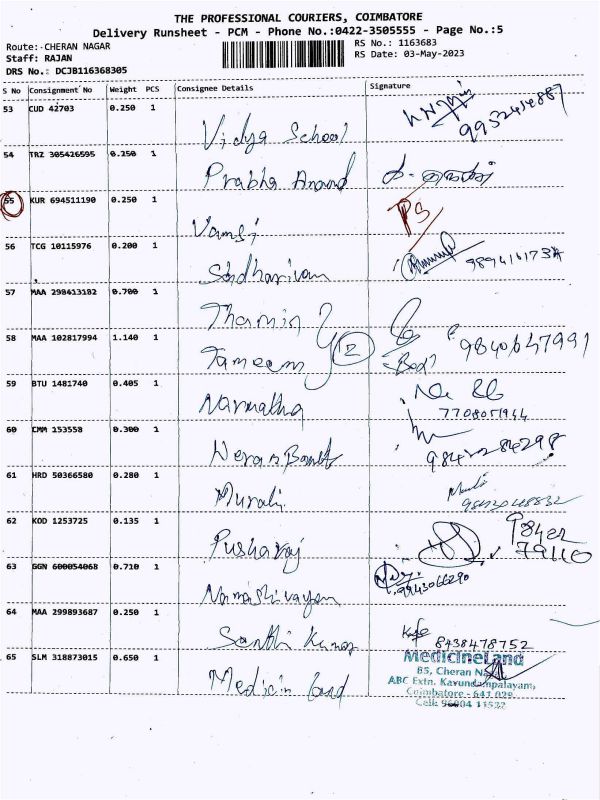 THE PROFESSIONAL COURIERS, COIMBATORE
Delivery Runsheet - PCM - Phone No.:0422-3505555 - Page No.:5
Route:- CHERAN NAGAR RS No.: 1163683
Staff: RAJAN RS Date: 03-May-2023
DRS No.: DCJB116368305
S No Consignment No Weight PCS Consignee Details Signature
53 CUD 42703 0.250 1
Vidya School
54 TRZ 305426595 0.250 1
Prabha Anand
55 KUR 694511190 0.250 1 PS
Vamsi
56 TCG 10115976 0.200 1
57 MAA 298413182 0.700 1
Thamin
58 MAA 102817994 1.140 1 2
Tameem
59 BTU 1481740 0.405 1
Narmatha 7708051944
60 CMM 153558 0.300 1
61 HRD 50366580 0.280 1
Murali
62 KOD 1253725 0.135 1
Pusharaj 79110
63 GGN 600054068 0.710 1
Namashivayam 9943066290
64 MAA 299893687 0.250 1
Santhi Kumar 8438478752
65 SLM 318873015 0.650 1 MedicineLand
85, Cheran
Medicin land ABC Extn. Kavundampalayam,
Coimbatore - 641 029
Cell: 96004 11522